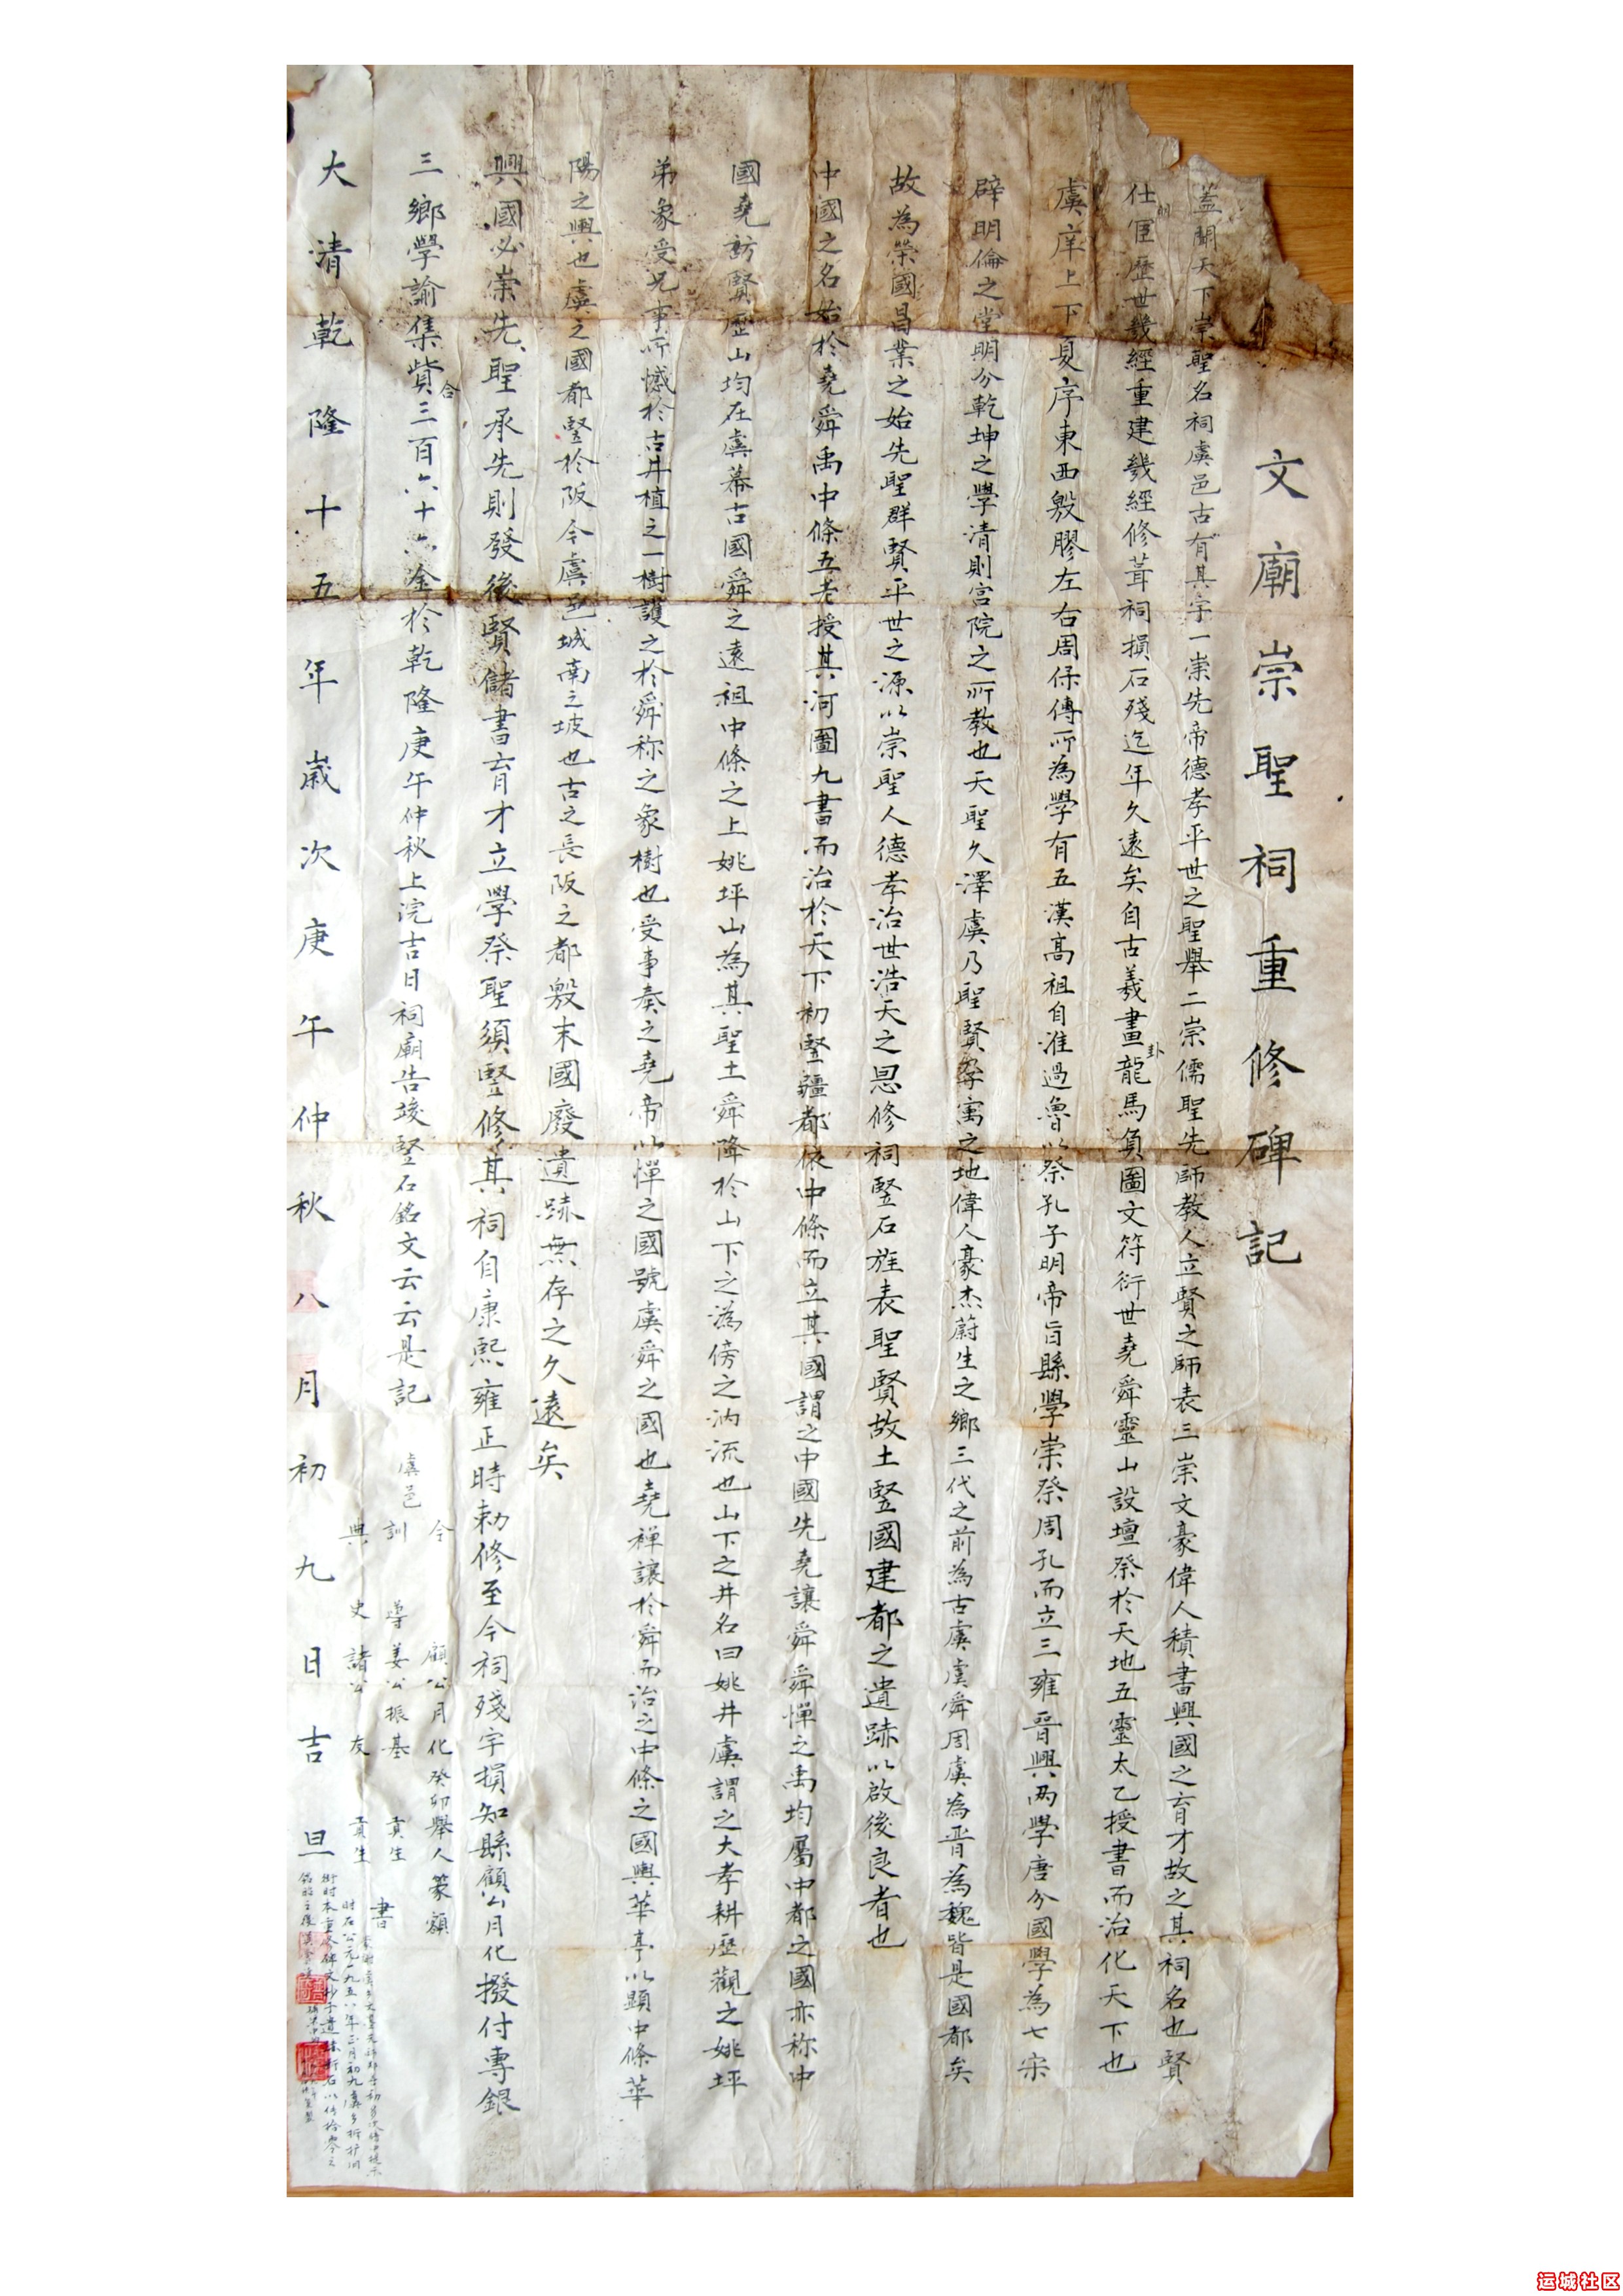 文廟崇聖祠重修碑記
蓋聞天下崇聖名祠虞邑古有其字一崇先帝德孝平世之聖舉二崇儒聖先師教人立賢之師表三崇文豪偉人積書興國之育才故之其祠名也賢
仕宦歷世幾經重建幾經修葺祠損石殘迄年久遠矣自古羲畫卦龍馬負圖文符衍世堯舜靈山設壇祭於天地五靈太乙授書而治化天下也
虞庠上下夏序東西殷膠左右周保傅所為學有五漢高祖自淮過魯以祭孔子明帝旨縣學崇祭周孔而立三雍晉興两學唐分國學為七宋
辟明倫之堂明分乾坤之學清則宮院之所教也天聖久澤虞乃聖賢寓之地偉人豪杰蔚生之鄉三代之前為古虞虞舜周虞為晋為魏皆是國都矣
故為榮國昌業之始先聖群賢平世之源以崇聖人德孝治世浩天之恩修祠竪石旌表聖賢故土竪國建都之遺跡以啟後良者也
中國之名始於堯舜禹中條五老授其河圖九書而治於天下初竪疆都依中條而立其國謂之中國先堯讓舜舜憚之禹均屬中都之國亦称中
國堯訪賢歷山均在虞幕古國舜之遠祖中條之上姚坪山為其聖土舜降於山下之溈傍之汭流也山下之井名曰姚井虞謂之大孝耕歷觀之姚坪
弟象受兄事所憾於古井植之一樹護之於舜称之象樹也受事奏之堯帝以憚之國號虞舜之國也堯禅讓於舜而治之中條之國興華亭以顯中條華
陽之興也虞之國都竪於阪今虞邑城南之坡也古之長阪之都殷末國廢遺跡無存之久遠矣
興國必崇先聖承先則發後賢儲書育才立學祭聖須竪修其祠自康熙雍正時勅修至今祠殘字損知縣顧公月化撥付專銀
三鄉學諭集貲合三百六十六金於乾隆庚午仲秋上浣吉日祠廟告竣竪石銘文云云是記
虞邑
令 顧公月化癸卯舉人篆額
訓導姜公振基 貢生
典史諸公友 貢生
書
大清乾隆十五年歲次庚午仲秋八月初九日吉旦
時在公元一九五八年三月初九
运城社区